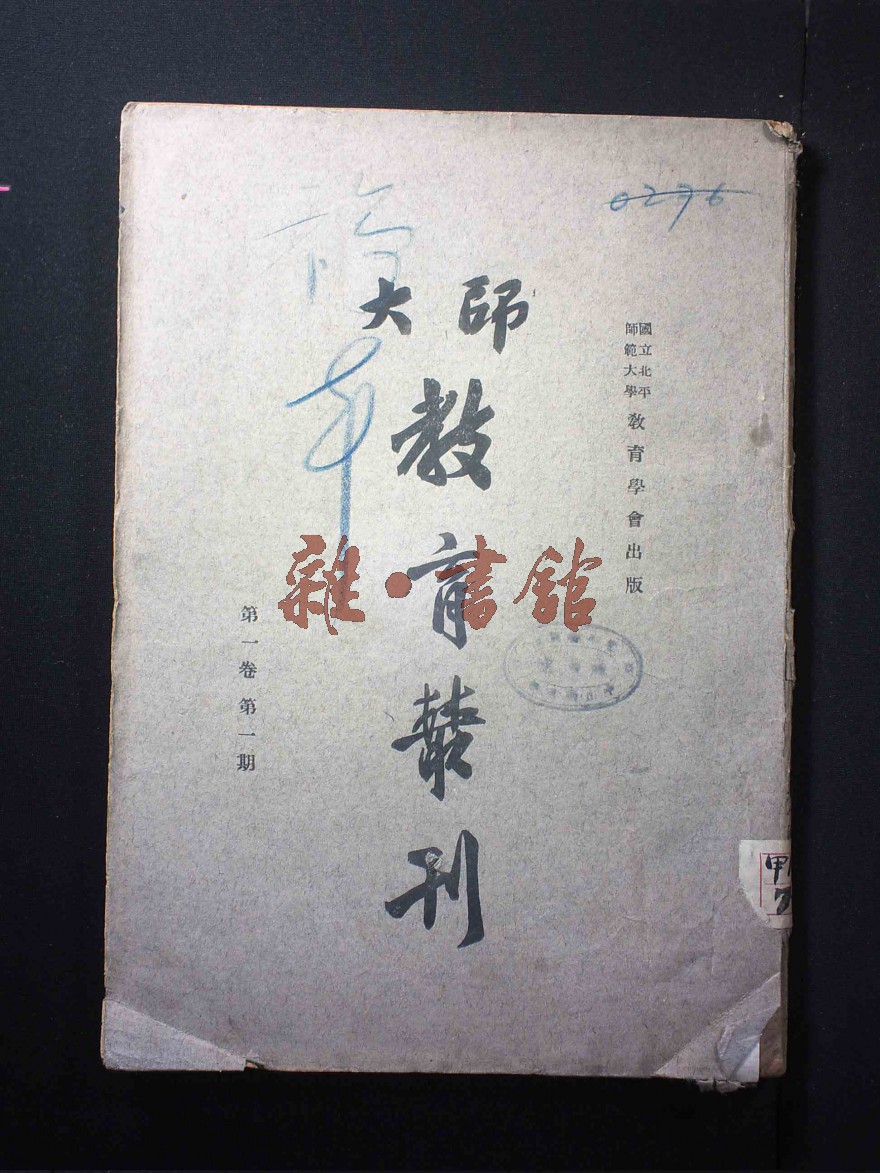 0276
國立北平
師範大學
教育學會出版
師大
教育叢刊
第一卷第一期
雜·書館
甲